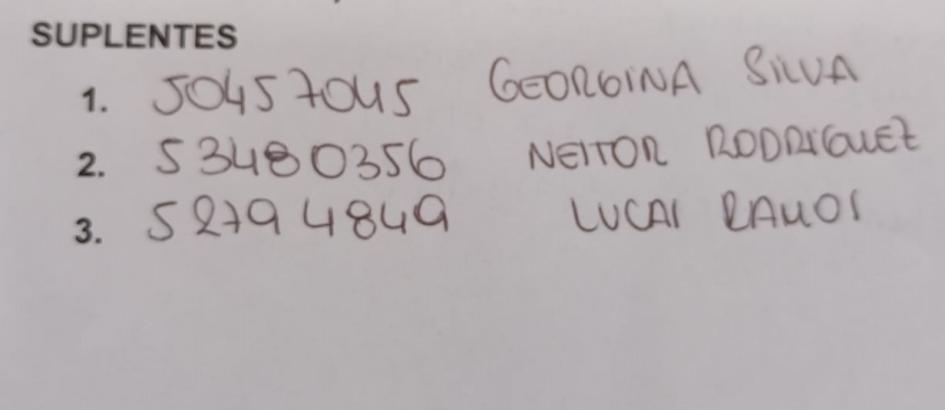 SUPLENTES
1. 50457045 GEORGINA SILVA
2. 53480356 NEITOR RODRIGUEZ
3. 52794849 LUCAS RAMOS